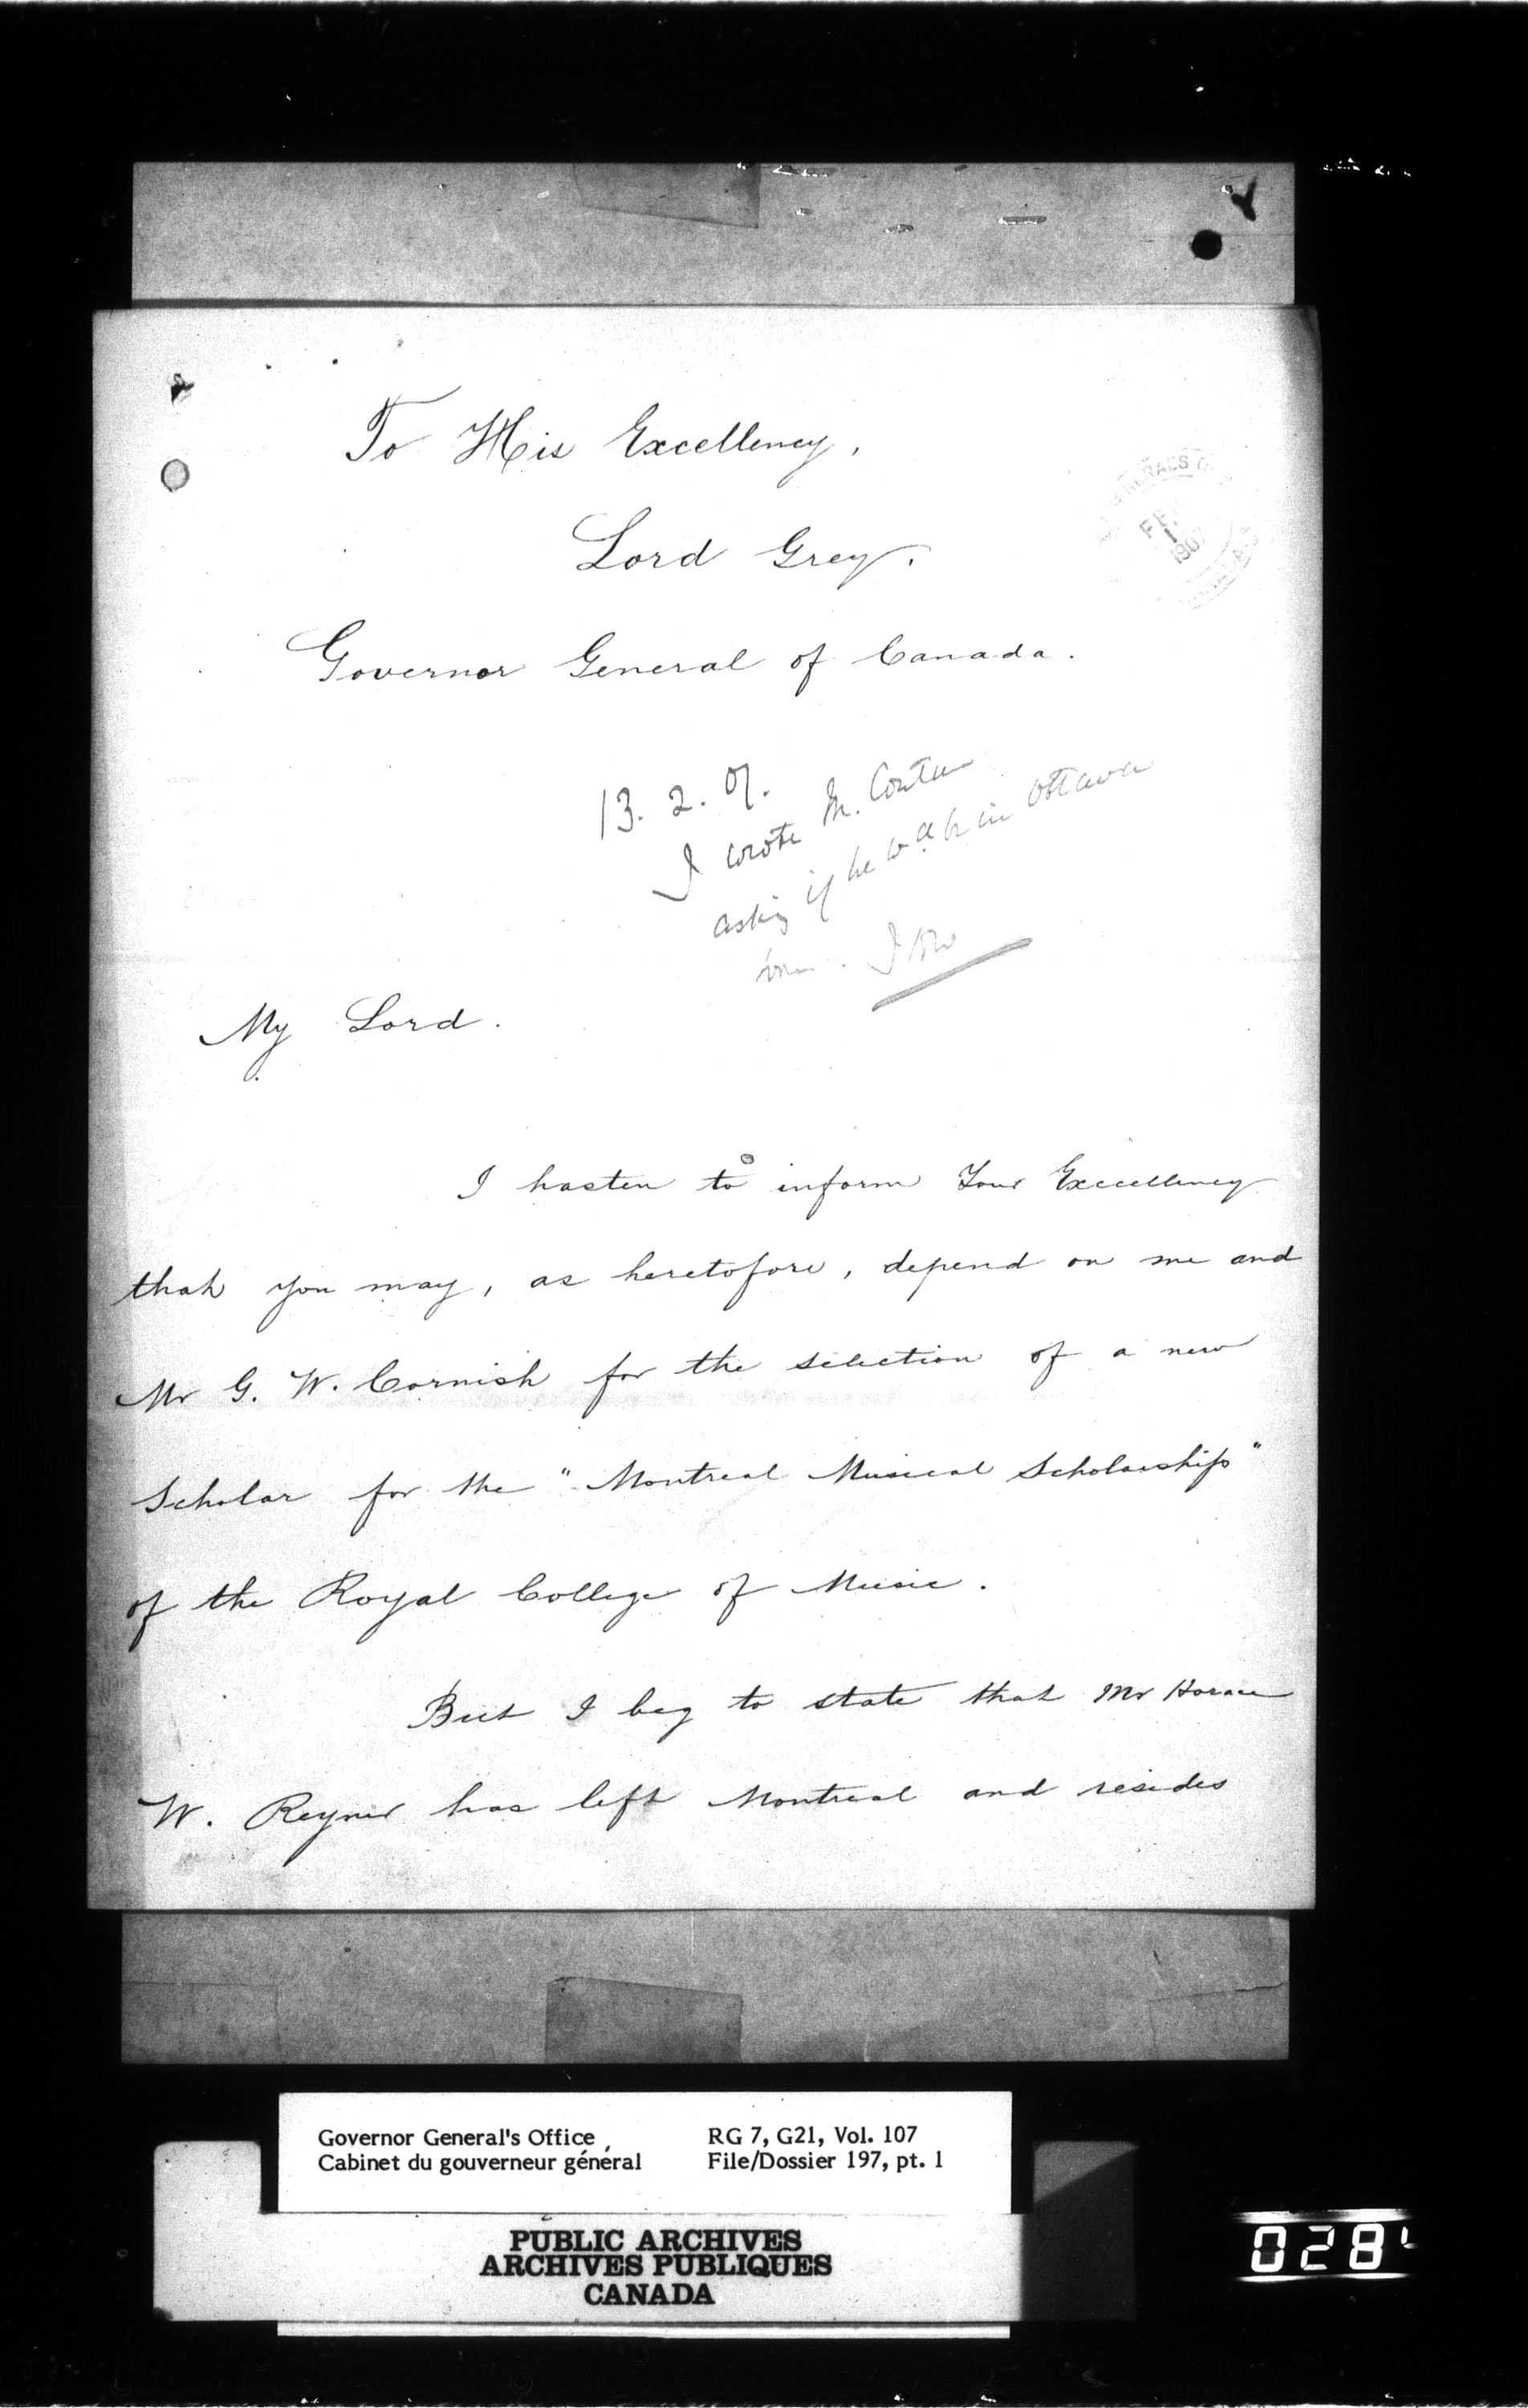 To His Excellency,
Lord Grey.
Governor General of Canada.
FE
1907
13. 2. 07.
I wrote M.
asking if he wd be in Ottawa
My Lord.
I hasten to inform Your Excellency
that you may, as heretofore, depend on me and
Mr G. W. Cornish for the selection of a new
Scholar for the "Montreal Musical Scholarship"
of the Royal College of Music.
But I beg to state that Mr Horace
W. Reyner has left Montreal and resides
Governor General's Office
Cabinet du gouverneur général
RG 7, G21, Vol. 107
File/Dossier 197, pt. 1
PUBLIC ARCHIVES
ARCHIVES PUBLIQUES
CANADA
028